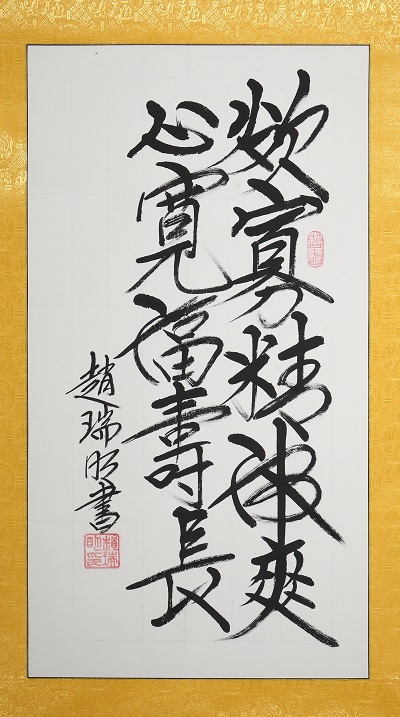 欲寡精神爽
心寬福壽長
趙瑞昭書